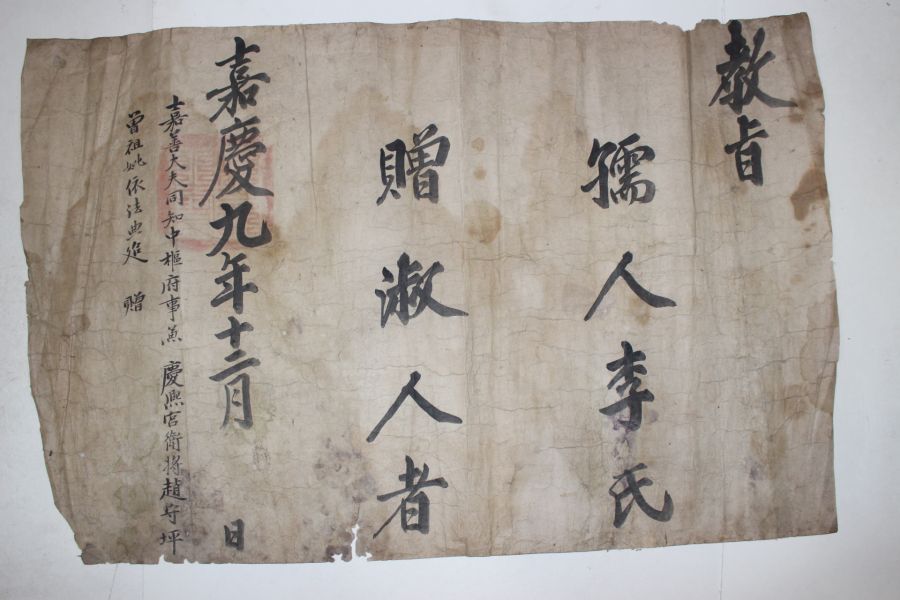 教旨
孺人李氏
贈淑人者
嘉慶九年十二月 日
嘉善大夫同知中樞府事兼 慶熙宮衛將趙守坪
曾祖妣依法典追 贈